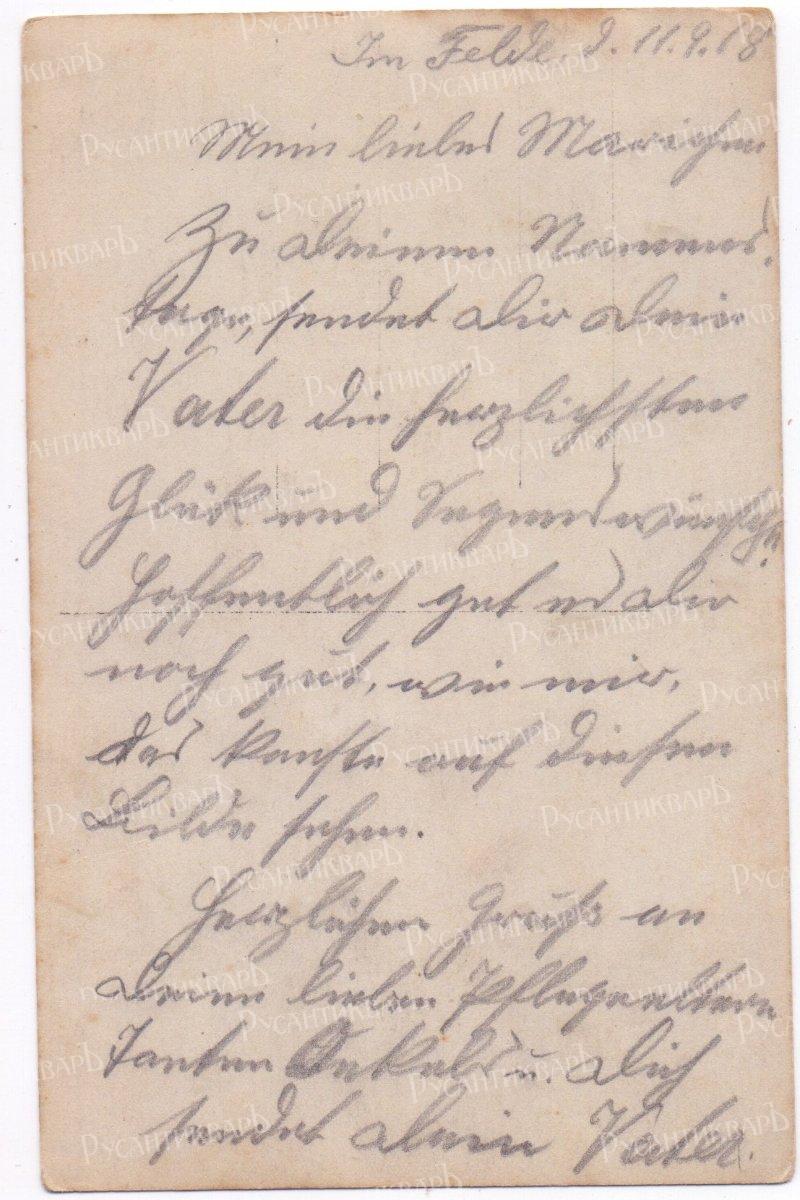 Im Felde, d. 11.9.18
Mein liebes Mariechen
Zu Deinem Namens-
tage, sendet Dir Dein
Vater die herzlichsten
Glück und Segenswünsche.
Hoffentlich get es Dir
noch gut, wie mir,
das kanste auf diesen
Bilde sehen.
Herzlichen Gruß an
Deine lieben Pflegeeltern
Tanten Onkels u. Dich
sendet Dein Vater.
РусАнтикварЪ